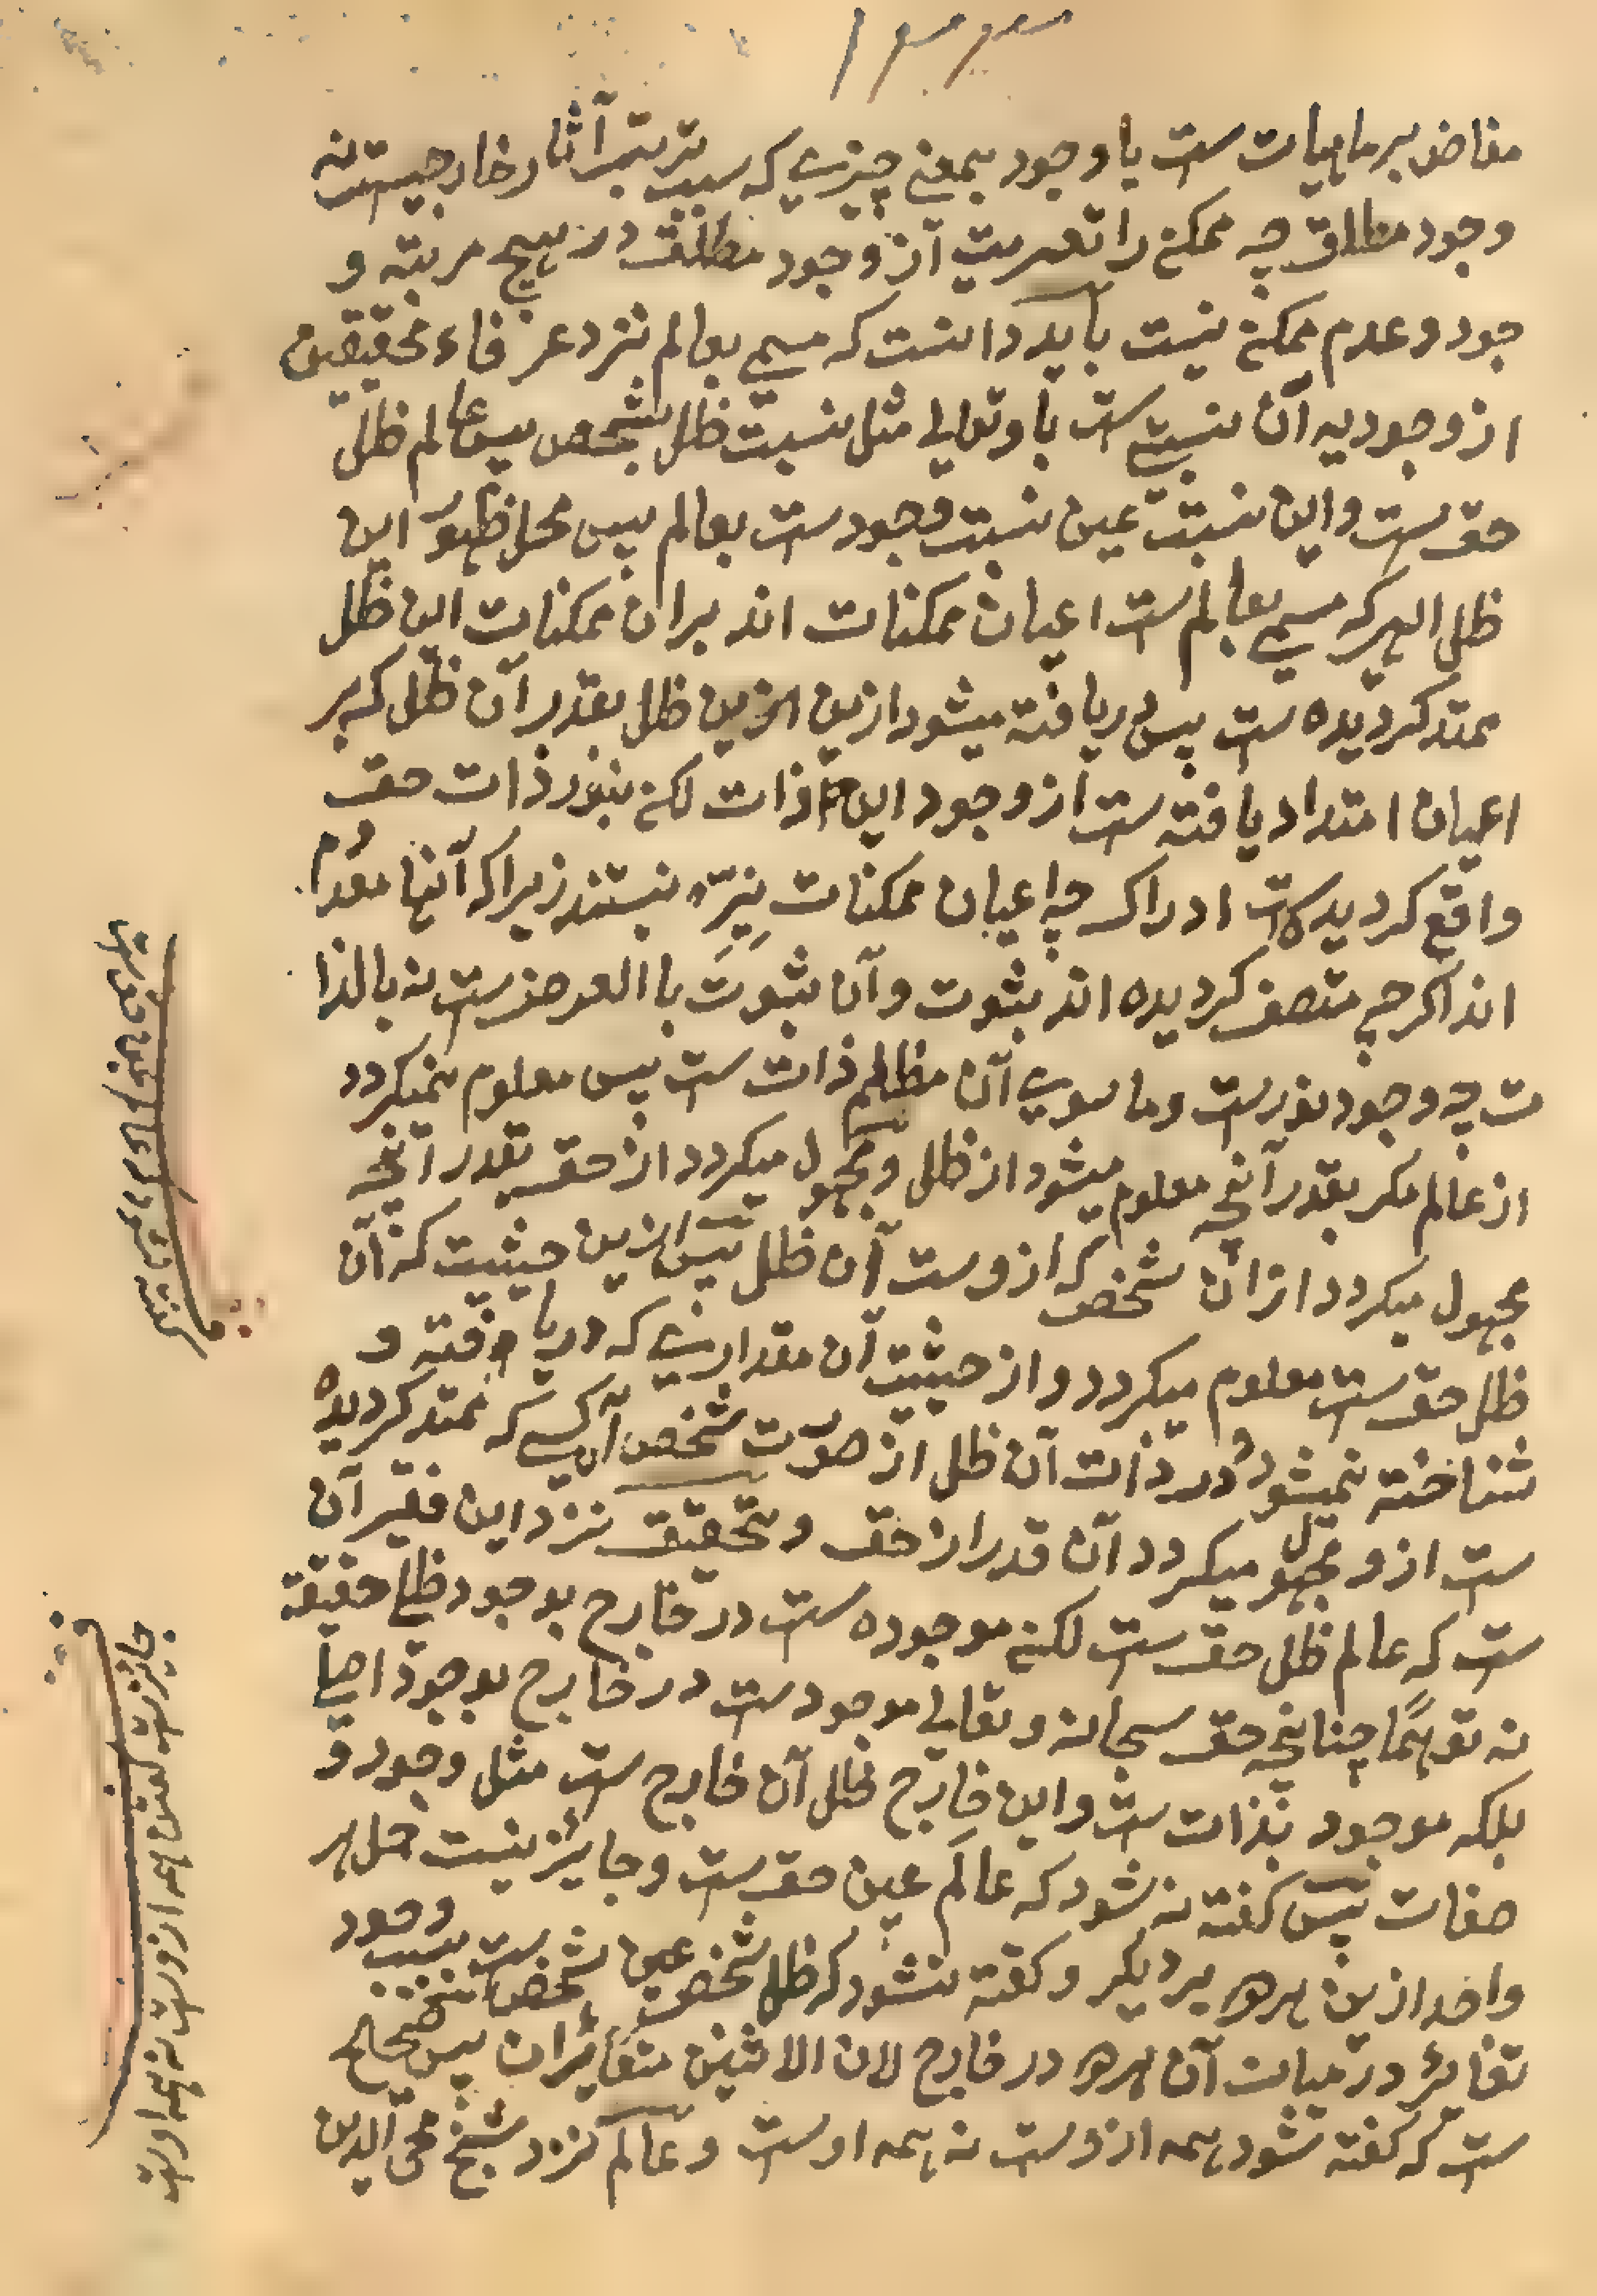 مفاض بر ماهیات ست یا وجود بمعنے چیزے که سبب ترتب آثار خارجیست نه
وجود مطلق چه ممکن را تعریت از وجود مطلق در هیچ مرتبه و
جود و عدم ممکن نیست باید دانست که مسمے بعالم نزد عرفاء محققین
از وجودیه آن نسبتے ست باو تعالے مثل نسبت ظل بشخص پس عالم ظل
حق ست و این نسبت عین نسبت وجود ست بعالم پس محل ظهور این
ظل الهی که مسمے بعالم ست اعیان ممکنات اند بران ممکنات این ظل
ممتد کردیده ست پس دریافته میشود ازین ظل بقدر آن ظل که بر
اعیان امتداد یافته ست از وجود این ذات لکن بنور ذات حق
واقع کردیده ست ادراک چه اعیان ممکنات نیّره نیستند زیراکه آنها معدوم
اند اکرچه متصف کردیده اند بثبوت و آن ثبوت با العرض ست نه بالذا
ت چه وجود نور ست و ما سوے آن مظلم ذات ست پس معلوم نمیکردد
از عالم مکر بقدر آنچه معلوم میشود از ظل و مجهول میکردد از حق بقدر آنچه
مجهول میکردد از ان شخص که ازوست آن ظل پس ازین حیثیت که آن
ظل حق ست معلوم میکردد و از حیثیت آن مقدارے که دریافته و
شناخته نمیشود در ذات آن ظل از صورت شخص آن کسے که ممتد کردیده
ست ازو مجهول میکردد آن قدر از حق و تحقیق نزد این فقیر آن
ست که عالم ظل حق ست لکن موجوده ست در خارج بوجود ظلے حقیقة
نه توهمًا چنانچه حق سبحانه و تعالے موجود ست در خارج بوجود اصلے
بلکه موجود بذات ست و این خارج ظل آن خارج ست مثل وجود و
صفات پس کفته نه شود که عالم عین حق ست و جایز نیست حمل هر
واحد ازین هردو بر دیکر و کفته نشود که ظل شخص عین شخص ست بسبب وجود
تغایر درمیان آن هردو در خارج لان الاثنین متغایران پس صحیح
ست که کفته شود همه ازوست نه همه اوست و عالم نزد شیخ محی الدین
جایز ست کفتن همه ازوست نه همه اوست